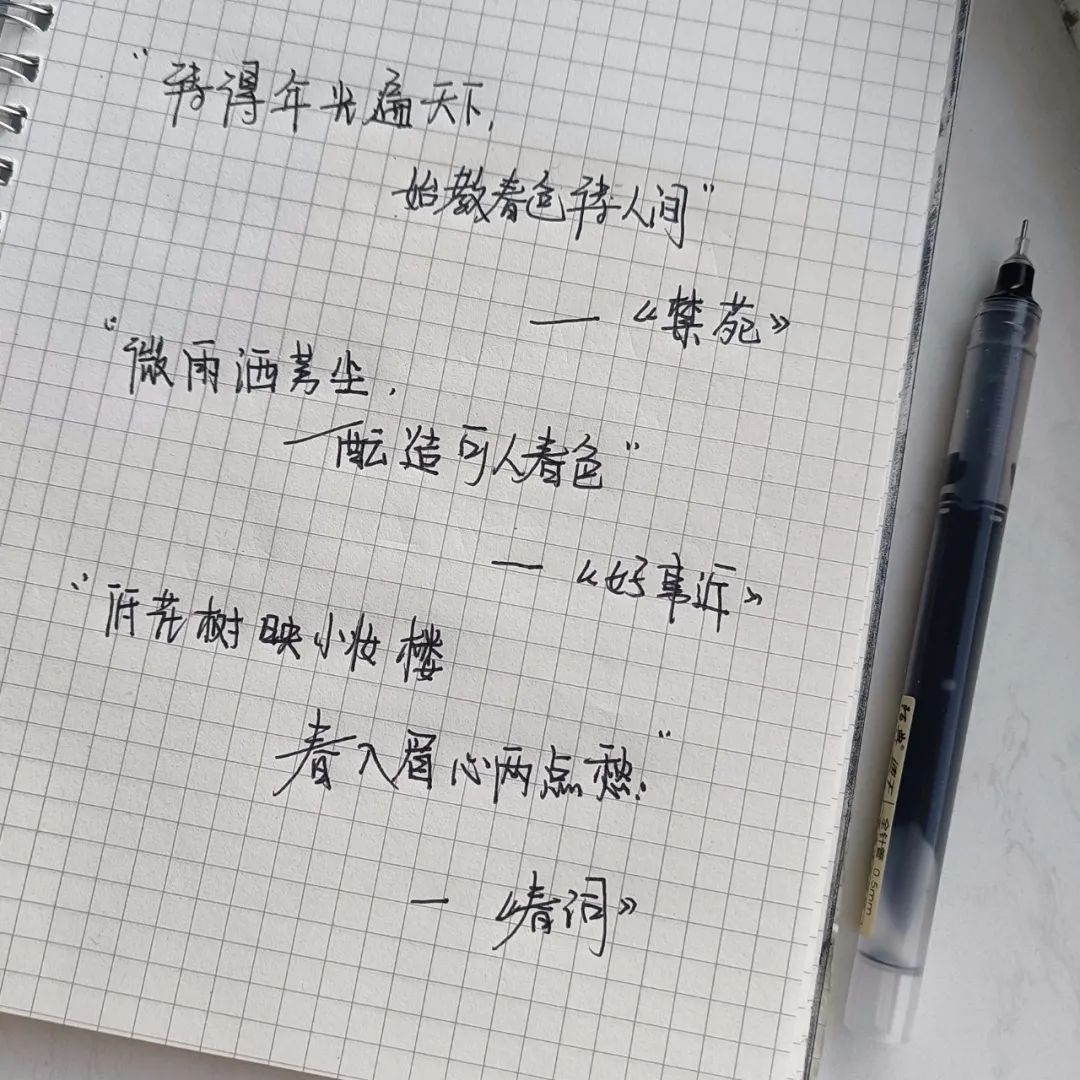 “得年光遍天下,
始教春色人间”
—《禁苑》
“微雨洒芳尘,
酝造可人春色”
—《好事近》
“低花树映小妆楼
春入眉心两点愁.”
—《春词》
全针管 0.5mm